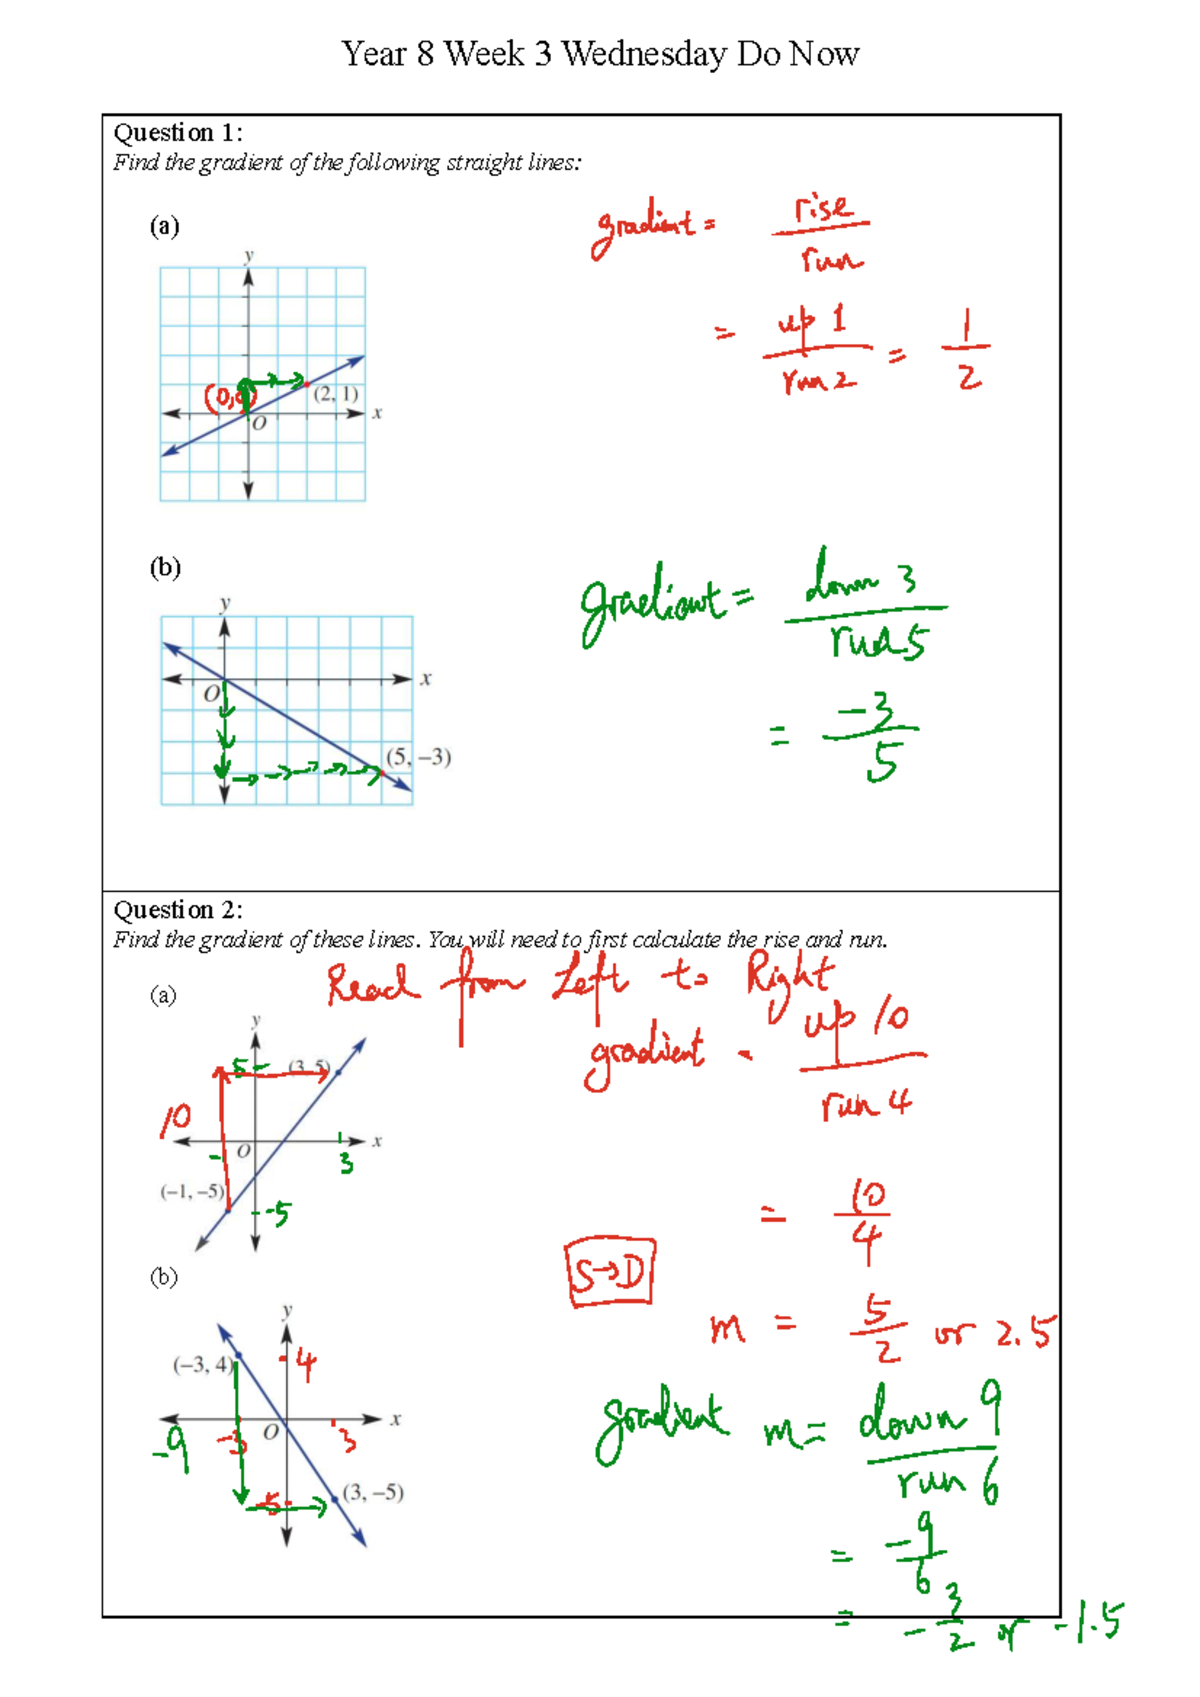 Year 8 Week 3 Wednesday Do Now
Question 1:
Find the gradient of the following straight lines:
(a)
gradient = rise
run
= up 1
run 2
= 1
2
y
(0,0)
(2, 1)
O
x
(b)
gradient = down 3
run 5
= -3
5
y
x
O
(5, –3)
Question 2:
Find the gradient of these lines. You will need to first calculate the rise and run.
Read from Left to Right
(a)
gradient = up 10
run 4
y
5
(3, 5)
10
O
x
3
(–1, –5)
-5
= 10
4
S→D
m = 5
2
or 2.5
(b)
y
(–3, 4)
4
gradient m = down 9
run 6
x
-9
-3
O
3
-5
(3, –5)
= -9
6
= - 3
2
or -1.5